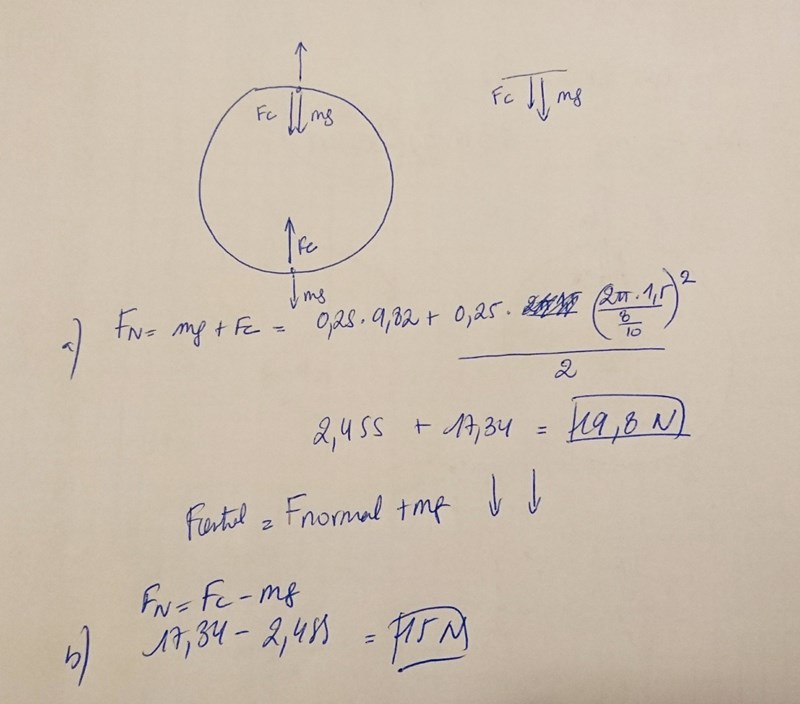 Fc mg
Fc mg
Fc
mg
a) FN = mg + Fc = 0,25 · 9,82 + 0,25 · (2π · 1,5 / 8/10)² / 2
2,455 + 17,34 = 19,8 N
= Fnormal + mg
FN = Fc - mg
b) 17,34 - 2,455 = 15 N